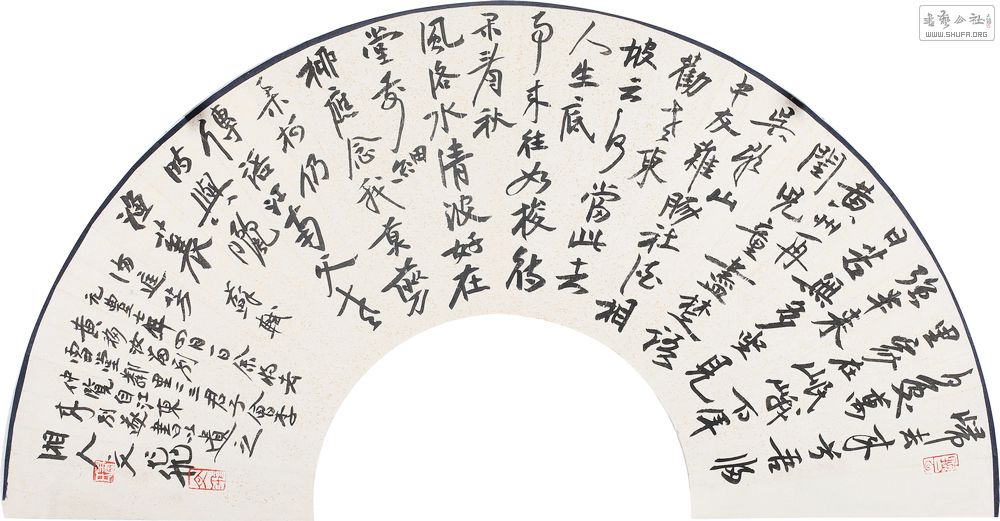 歸去来兮吾歸
何處萬
里家在岷峨百
年強半来
日苦無多坐見
黄州再
閏兒童盡楚語
吴歌山
中友雞豚社酒相
勸老東
坡云何當此去
人生底
事来往如梭待
閑看秋
風洛水清波好在
堂前細
柳應念我莫剪
柔柯仍
傳語江南父老
時與曬
漁蓑
滿庭芳 蘇軾
元豐七年四月一日余將去
黄移汝留別雪堂鄰里二三君子會李
仲覽自江東来別遂書以遺之
湘人文龍
書艺公社
WWW.SHUFA.ORG